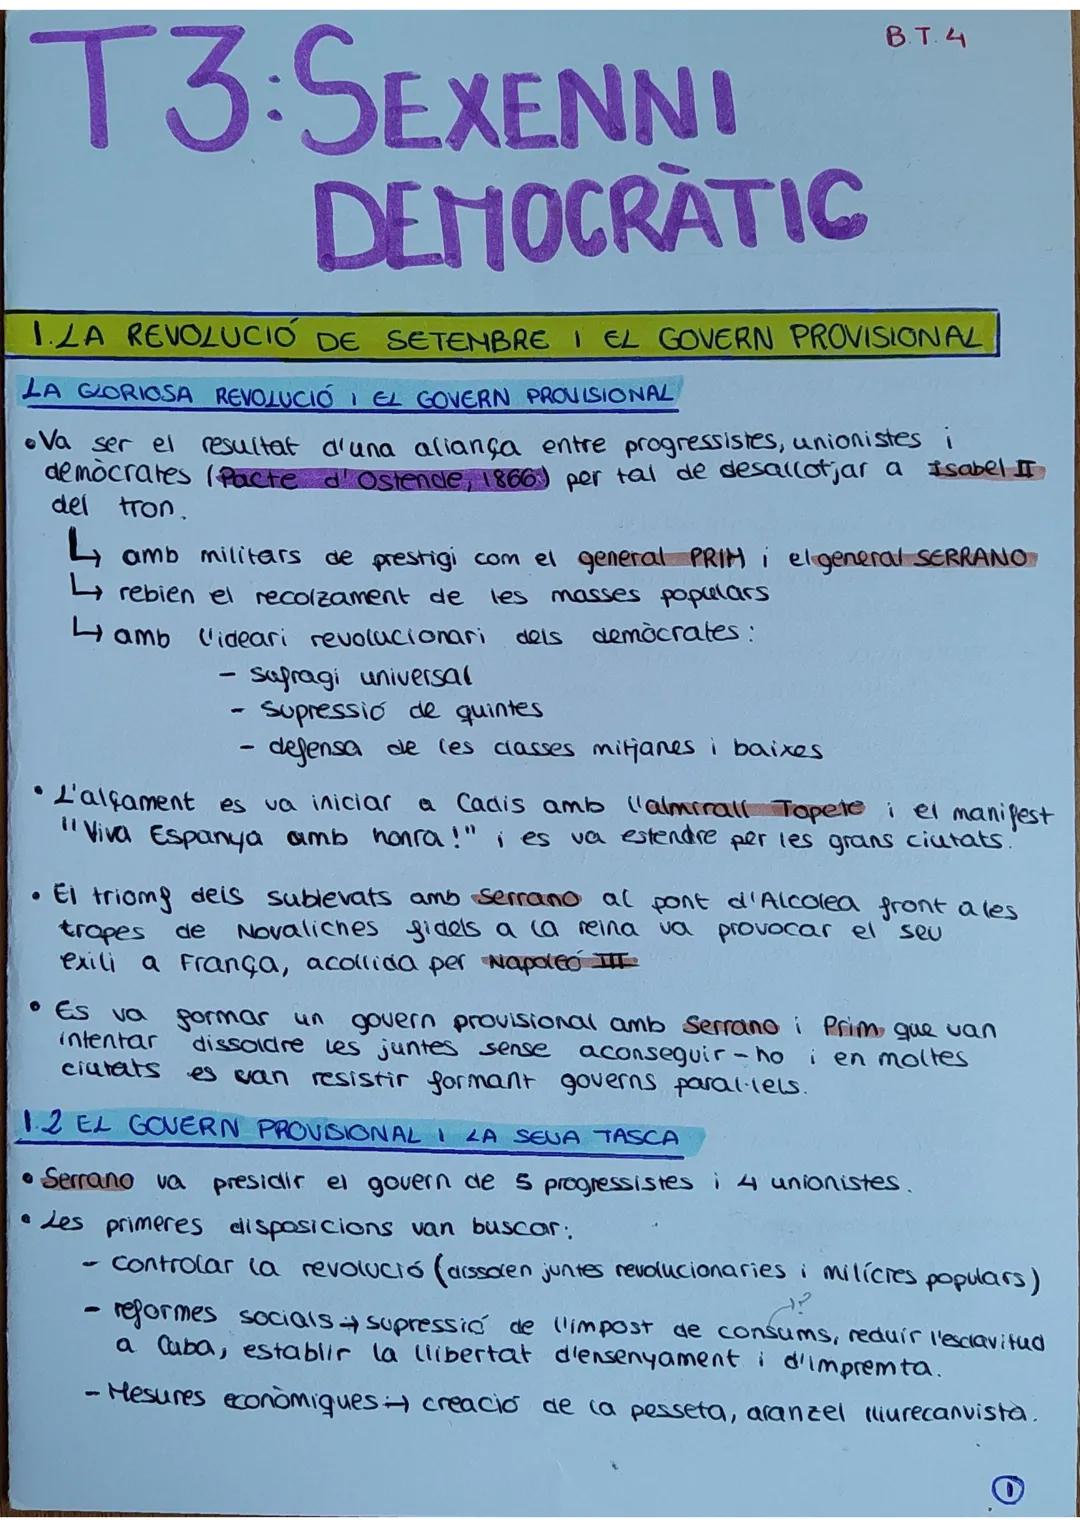 B.T. 4
T3: SEXENNI
DEMOCRÀTIC
1. LA REVOLUCIÓ DE SETEMBRE I EL GOVERN PROVISIONAL
LA GLORIOSA REVOLUCIÓ I EL GOVERN PROVISIONAL
• Va ser el resultat d'una aliança entre progressistes, unionistes i
demòcrates (Pacte d'Ostende, 1866) per tal de desallotjar a Isabel II
del tron.
↳ amb militars de prestigi com el general PRIM i el general SERRANO
↳ rebien el recolzament de les masses populars
↳ amb l'ideari revolucionari dels demòcrates:
- sufragi universal
- supressió de quintes
- defensa de les classes mitjanes i baixes
• L'alçament es va iniciar a Cadis amb l'almirall Topete i el manifest
"Viva Espanya amb honra!" i es va estendre per les grans ciutats.
• El triomf dels sublevats amb Serrano al pont d'Alcolea front a les
tropes de Novaliches fidels a la reina va provocar el seu
exili a França, acollida per Napoleó III
• Es va formar un govern provisional amb Serrano i Prim que van
intentar dissoldre les juntes sense aconseguir-ho i en moltes
ciutats es van resistir formant governs paral·lels.
1.2 EL GOVERN PROVISIONAL I LA SEUA TASCA
• Serrano va presidir el govern de 5 progressistes i 4 unionistes.
• Les primeres disposicions van buscar:
- controlar la revolució (dissolen juntes revolucionaries i milícies populars)
→?
- reformes socials → supressió de l'impost de consums, reduir l'esclavitud
a Cuba, establir la llibertat d'ensenyament i d'impremta.
- Mesures econòmiques → creació de la pesseta, aranzel lliurecanvista.
1